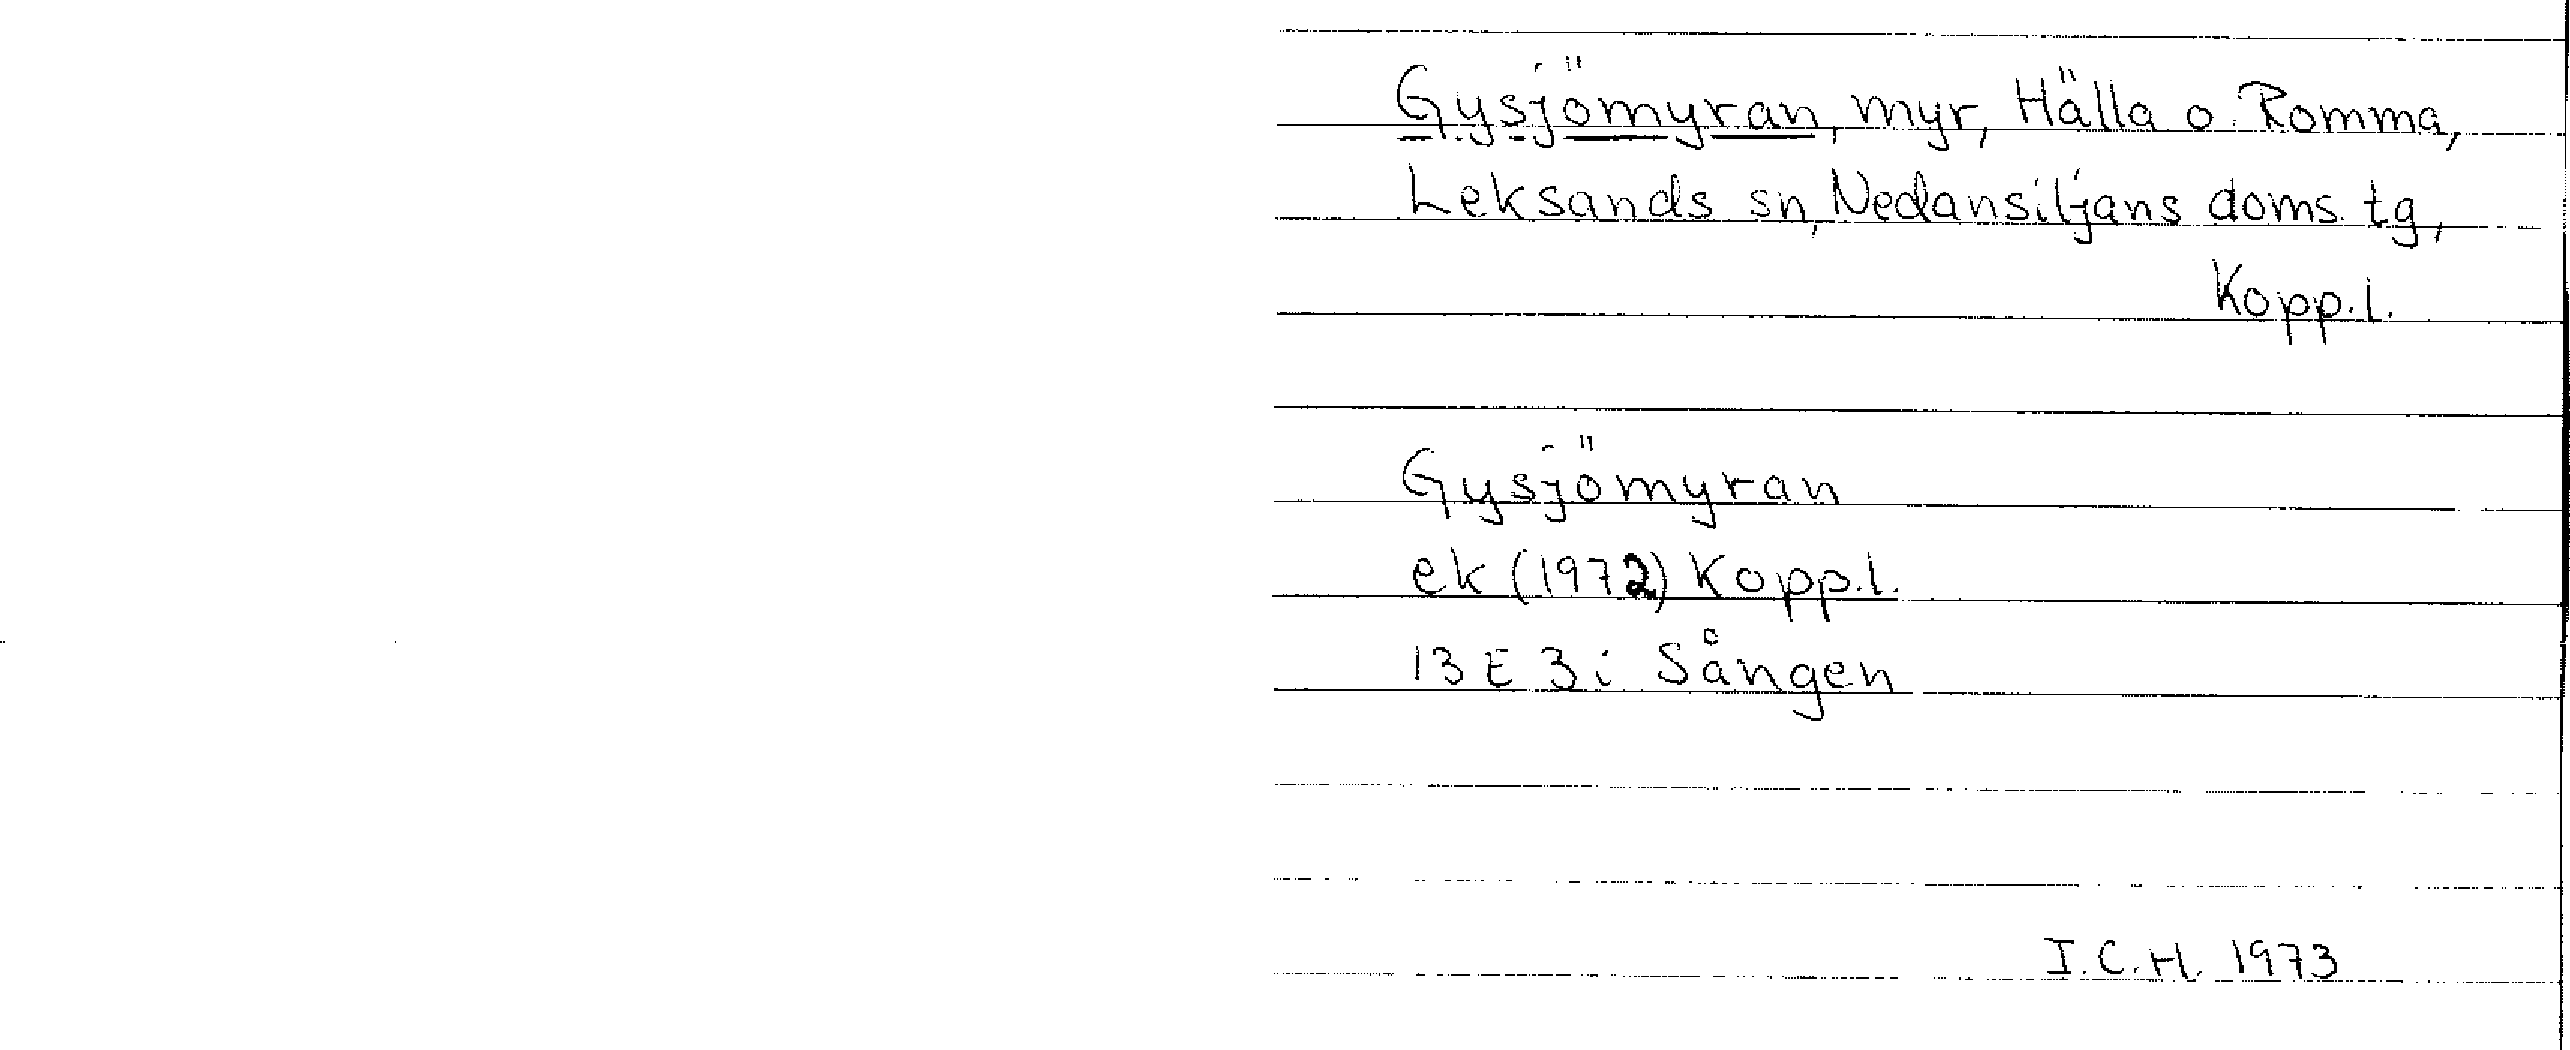 Gysjömyran, myr, Hälla o. Romma,
Leksands sn, Nedansiljans doms. tg,
Kopp.l.
Gysjömyran
ek (1972) Kopp.l.
13 E 3i Sången
I.C.H. 1973